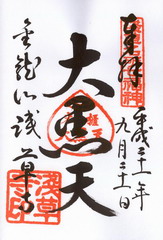 奉拝
平成二十一年
九月二十一日
大黒天
金龍山浅草寺
浅草寺印